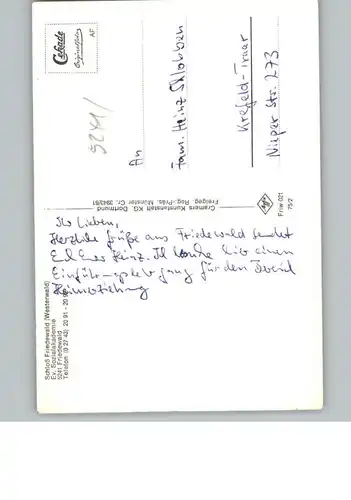 Schloß Friedewald (Westerwald)
Ev. Sozialakademie
5241 Friedewald
Telefon (0 27 43) 20 91 - 20 93
Ihr Lieben,
Herzliche Grüße aus Friedewald sendet
Euch Euer Heinz. Ich mache hier einen
Einführungslehrgang für den Bereich
Heimerziehung
Cramers Kunstanstalt KG, Dortmund
Freigeg. Reg.-Präs. Münster Cr. 3943/61
Frw 021
75/2
Cekade
Originalfoto
AF
5241/
An
Fam. Heinz
Krefeld-Traar
Nieper Str. 273